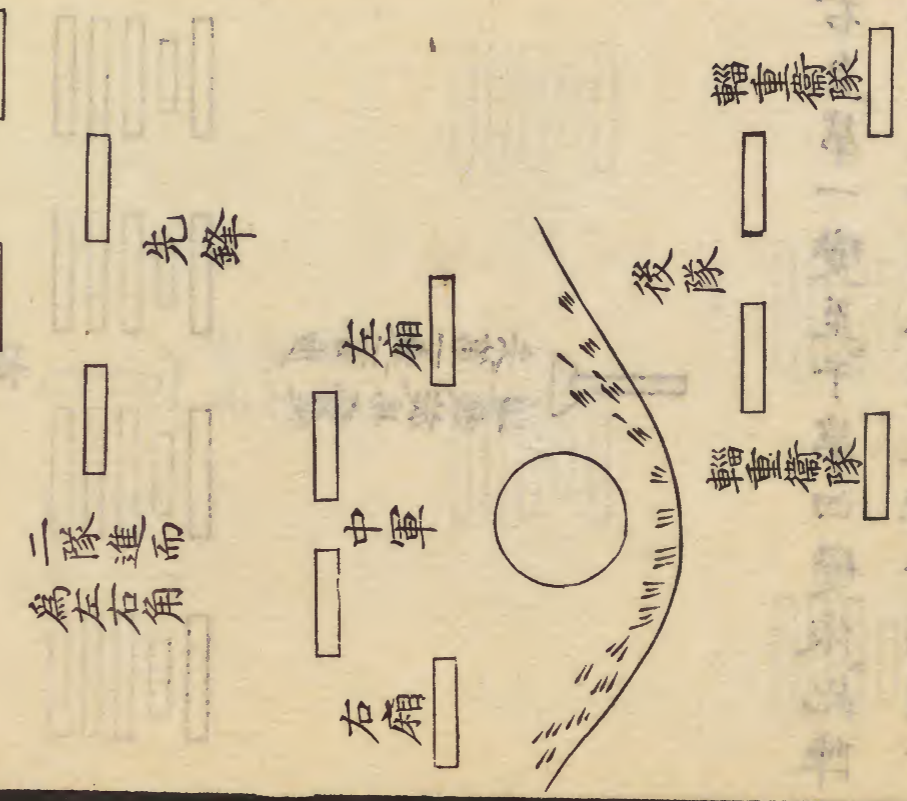 先鋒
二隊進而
爲左右角
左廂
中軍
右廂
後隊
輜重衞隊
輜重衞隊